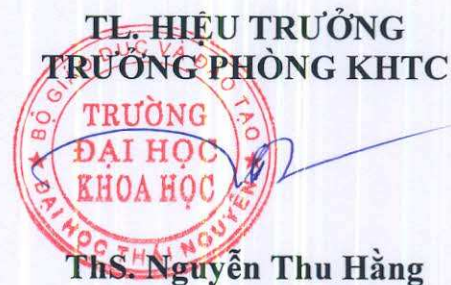 TL. HIỆU TRƯỞNG
TRƯỞNG PHÒNG KHTC
BỘ GIÁO DỤC VÀ ĐÀO TẠO
TRƯỜNG
ĐẠI HỌC
KHOA HỌC
ĐẠI HỌC THÁI NGUYÊN
ThS. Nguyễn Thu Hằng